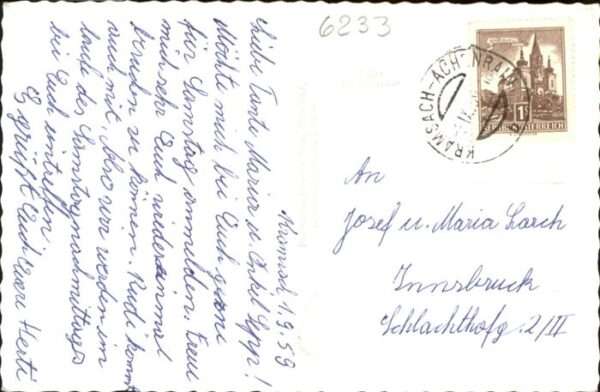 6233
KRAMSACH-ACHENRAIN
1 S
REPUBLIK ÖSTERREICH
Kramsach, 1.9.59
Liebe Tante Maria u. Onkel Sepp!
Möchte mich bei Euch gerne
für Samstag anmelden. Freue
mich sehr Euch wiedereinmal
zu können. Rudi kommt
auch mit. Also wir werden im
Laufe des Samstagnachmittags
bei Euch eintreffen.
Es grüßt Euch Eure Herta
An
Josef u. Maria Larch
Innsbruck
Schlachthofg. 2/III